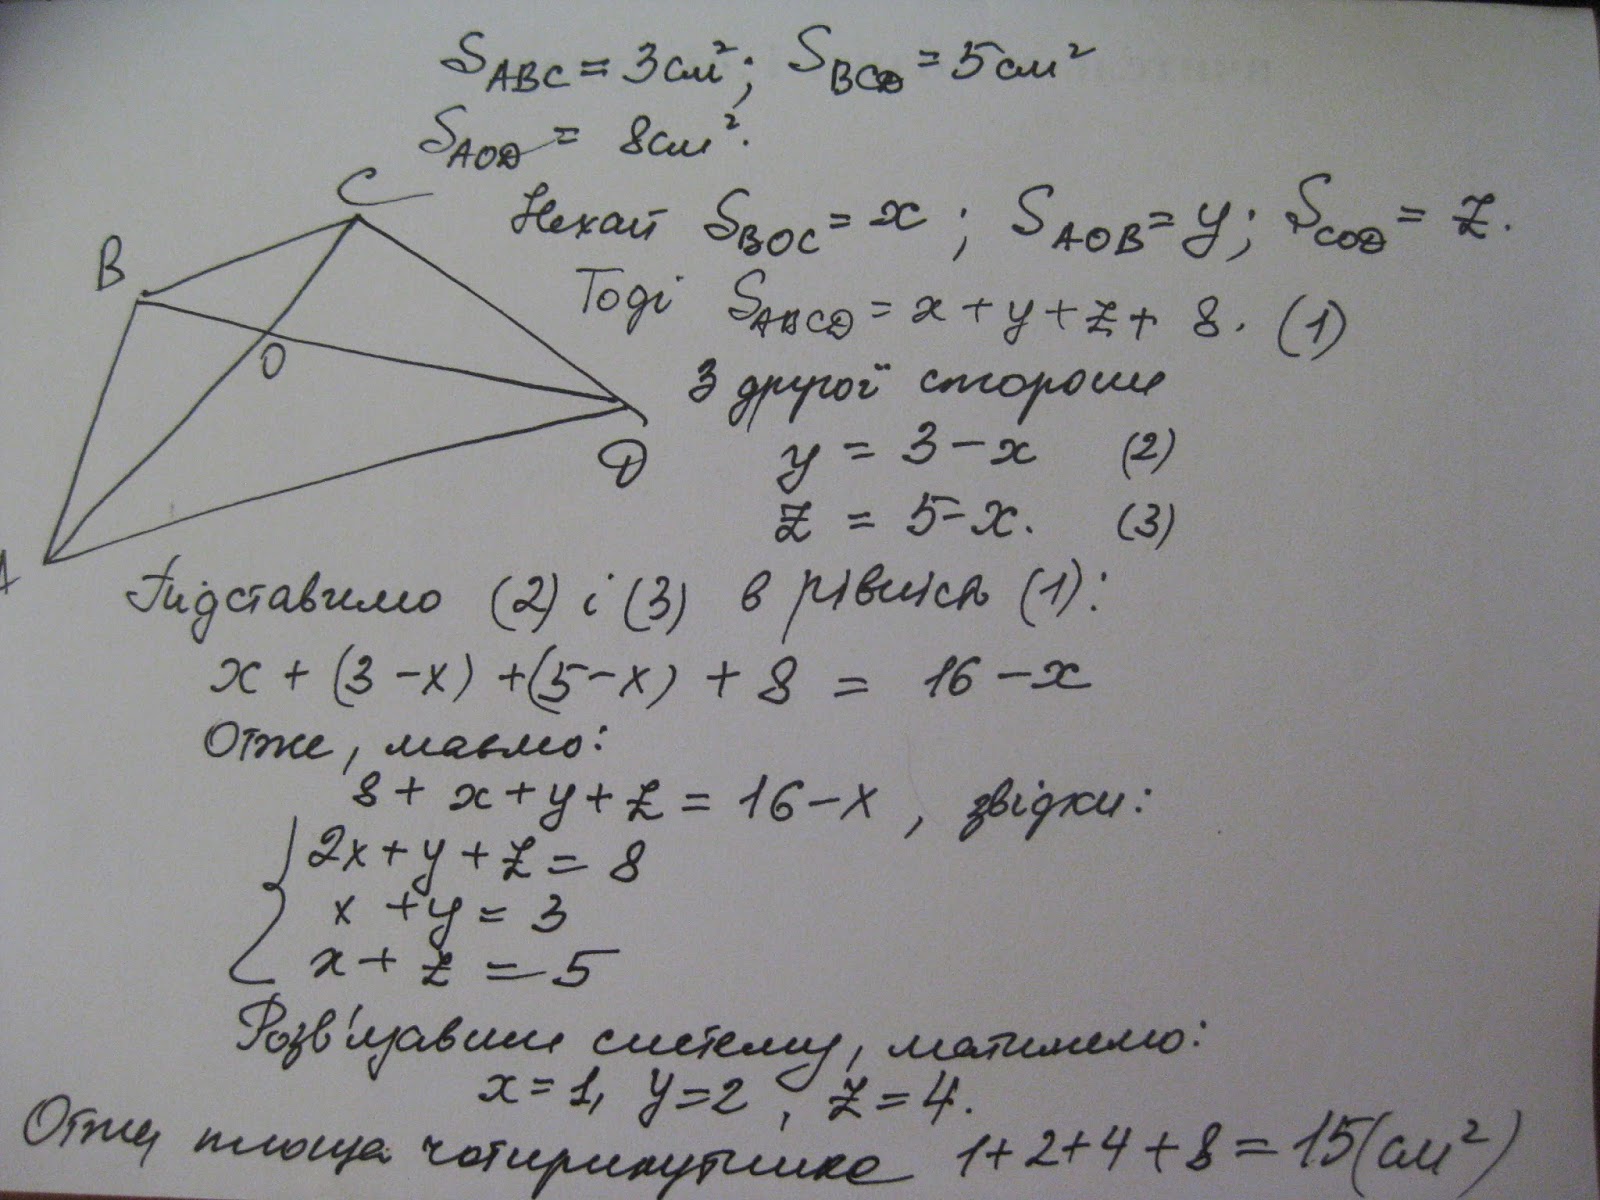 S_ABC = 3см²; S_BCD = 5см²
S_AOD = 8см².
Нехай S_BOC = x ; S_AOB = y; S_COD = z.
Тоді S_ABCD = x + y + z + 8. (1)
З другої сторони
y = 3 - x (2)
z = 5 - x. (3)
B
C
O
D
A
Підставимо (2) і (3) в рівність (1):
x + (3 - x) + (5 - x) + 8 = 16 - x
Отже, маємо:
8 + x + y + z = 16 - x , звідки:
2x + y + z = 8
x + y = 3
x + z = 5
Розв'язавши систему, матимемо:
x = 1, y = 2 , z = 4.
Отже площа чотирикутника 1 + 2 + 4 + 8 = 15 (см²)